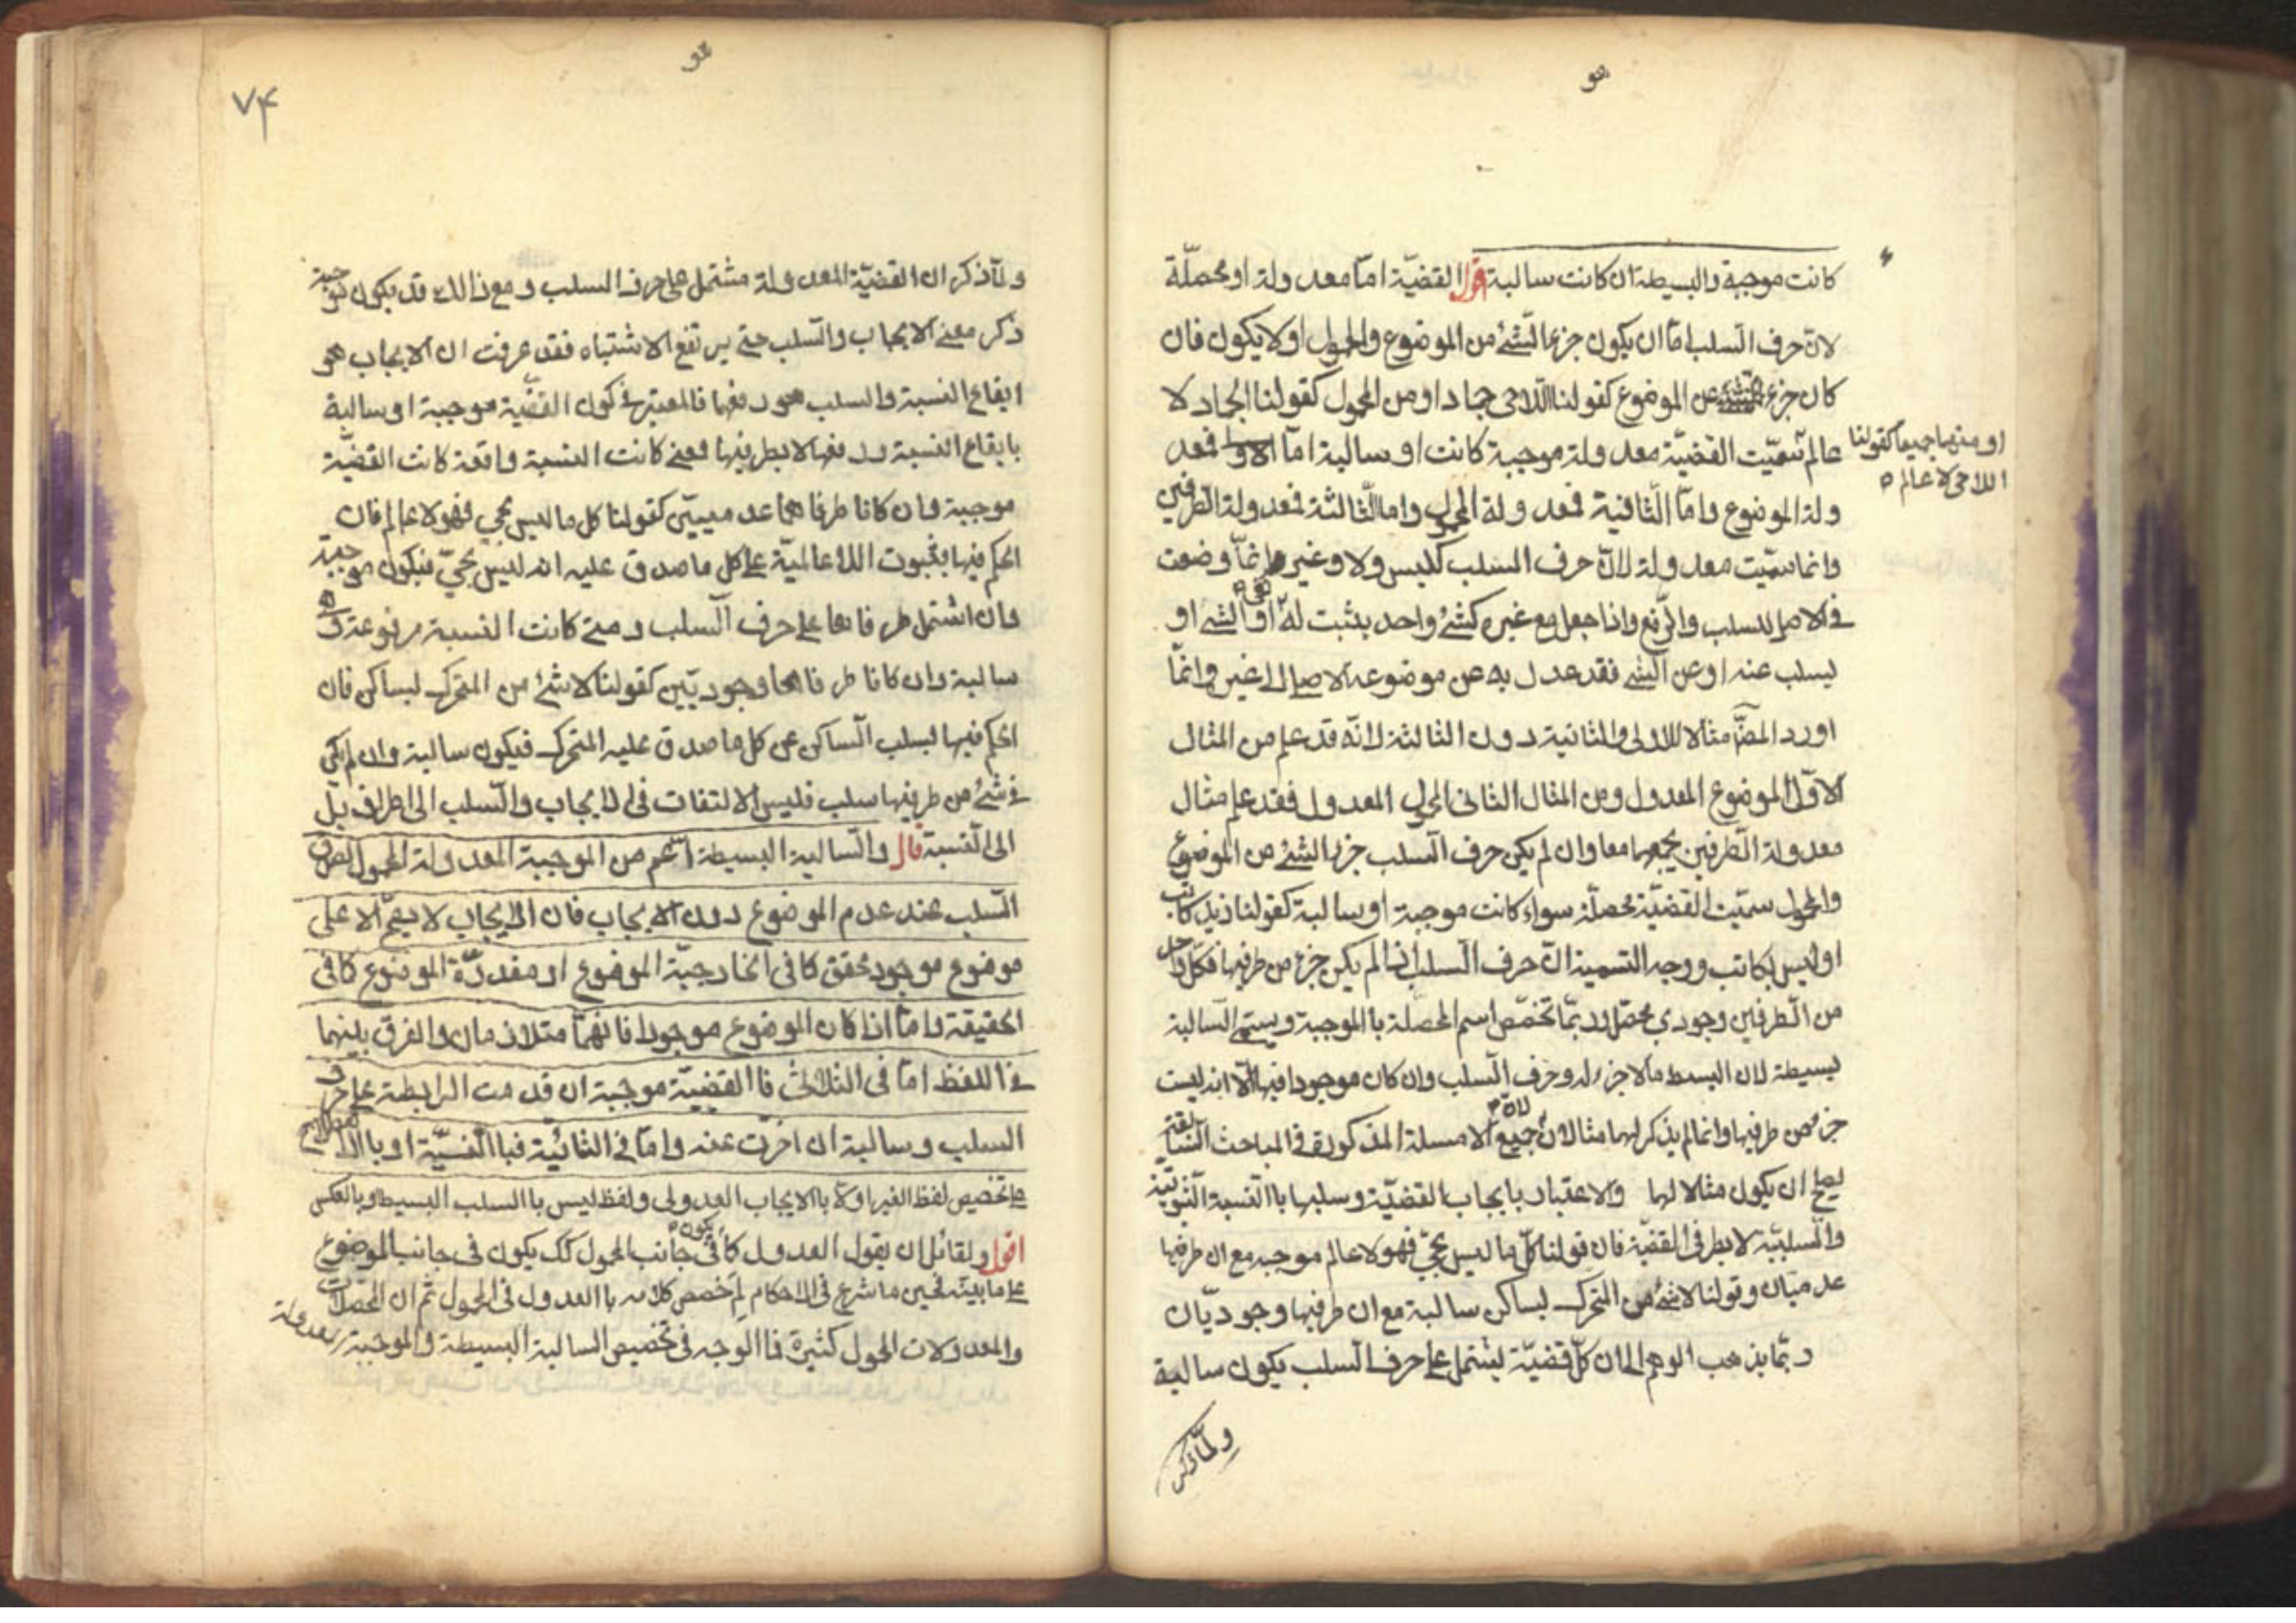 هو
كانت موجبة والبسيطة ان كانت سالبة اقول القضيّة امّا معدولة او محصّلة
لانّ حرف السّلب امّا ان يكون جزءا لشئ من الموضوع والمحمول اولا يكون فان
كان جزءا من الموضوع كقولنا اللاحى جماد او من المحمول كقولنا الجماد لا
عالم سُمّيت القضيّة معدولة موجبة كانت او سالبة امّا الاولى فمعد
او منهما جميعا كقولنا
اللاحى لا عالم ه
ولة الموضوع وامّا الثّانية فمعدولة المحمول واما الثّالثة فمعدولة الطّرفين
وانما سمّيت معدولة لانّ حرف السلب كليس ولا وغيرهما انمّا وضعت
فى الاصل للسلب والرّفع واذا جعل مع غيره كشئ واحد يثبت له شئ او الشئ او
يسلب عنه او عن الشئ فقد عدل به عن موضوعه الاصلى الى غيره وانمّا
اورد المصنّف مثالا للاولى والثانية دون الثالثة لانّه قد علم من المثال
الاوّل الموضوع المعدول ومن المثال الثانى المحمول المعدول فقد علم مثال
معدولة الطّرفين بجمعهما معا وان لم يكن حرف السّلب جزءا لشئ من الموضوع
والمحمول سمّيت القضيّة محصّلة سواء كانت موجبة او سالبة كقولنا زيد كاتب
او ليس بكاتب ووجه التسمية انّ حرف السّلب اذا لم يكن جزء من طرفيها فكلّ واحد
من الطّرفين وجودي محصّل وربمّا تخصّص اسم المحصّلة باالموجبة ويسمّى السّالبة
بسيطة لان البسيط ما لا جزء له وحرف السّلب وان كان موجودا فيها الّا انه ليست
جزء من طرفيها وانما لم يذكر لهما مثالا لانّ جميع الامسلة المذكورة فى المباحث السّابقة
يصلح ان يكون مثالا لهما والاعتبار بايجاب القضيّة وسلبها باالنّسبة الثّبوتيّة
والسّلبيّة لا بطرفى القضيّة فان قولنا كلّ ما ليس بحىّ فهو لا عالم موجبه مع ان طرفيها
عدميّان وقولنا لا شئ من المتحرك بساكن سالبة مع ان طرفيها وجوديّان
ربمّا يذهب الوهم الى ان كلّ قضيّة يشتمل على حرف السّلب يكون سالبة
ولمّا ذكر
هو
٧۴
ولمّا ذكر ان القضيّة المعدولة مشتمل على حرف السلب ومع ذالك قد يكون موجبة
ذكر معنى الايجاب والسّلب حتى يرتفع الاشتباه فقد عرفت ان الايجاب هو
ايقاع النسبة والسلب هو رفعها فالمعتبر فى كون القضيّة موجبة او سالبة
بايقاع النسبة ورفعها لا بطرفيها فمتى كانت النسبة واقعة كانت القضيّة
موجبة وان كانا طرفاهما عدميّين كقولنا كل ما ليس بحى فهو لا عالم فان
الحكم فيها بثبوت اللاعالميّة على كل ما صدق عليه انه ليس بحىّ فيكون موجبة
وان اشتمل طرفاها على حرف السّلب ومتى كانت النسبة مرفوعة فهى
سالبة وان كانا طرفاهما وجوديّين كقولنا لا شئ من المتحرك بساكن فان
الحكم فيها بسلب السّاكن عن كل ما صدق عليه المتحرك فيكون سالبة وان لم يكن
فى شئ من طرفيها سلب فليس الالتفات فى الايجاب والسّلب الى اطراف بل
الى النّسبة قال والسّالبة البسيطة اعم من الموجبة المعدولة المحمول لصدق
السّلب عند عدم الموضوع دون الايجاب فان الايجاب لا يصحّ الا على
موضوع موجود محقق كما فى الخارجيّة الموضوع او مقدّرة الموضوع كما فى
الحقيقة وامّا اذا كان الموضوع موجودا فانّهما متلازمان والفرق بينهما
فى اللفظ امّا فى الثلاثى فاالقضيّة موجبة ان قدمت الرابطة على حرف
السلب وسالبة ان اخرّت عنه وامّا فى الثنائيّة فباالنّيّة او باالاصطلاح
على تخصيص لفظ الغير اولا باالايجاب العدولى ولفظ ليس باالسلب البسيط وبالعكس
اقول ولقائل ان يقول العدول كما يكون فى جانب المحمول كك يكون فى جانب الموضوع
على ما بيّنه فحين ما شرع فى الاحكام لِمَ خصص كلامه باالعدول فى المحمول ثمّ ان المحصّلات
والمعدولات المحمول كثيرة فاالوجه فى تخصيص السالبة البسيطة والموجبة المعدولة